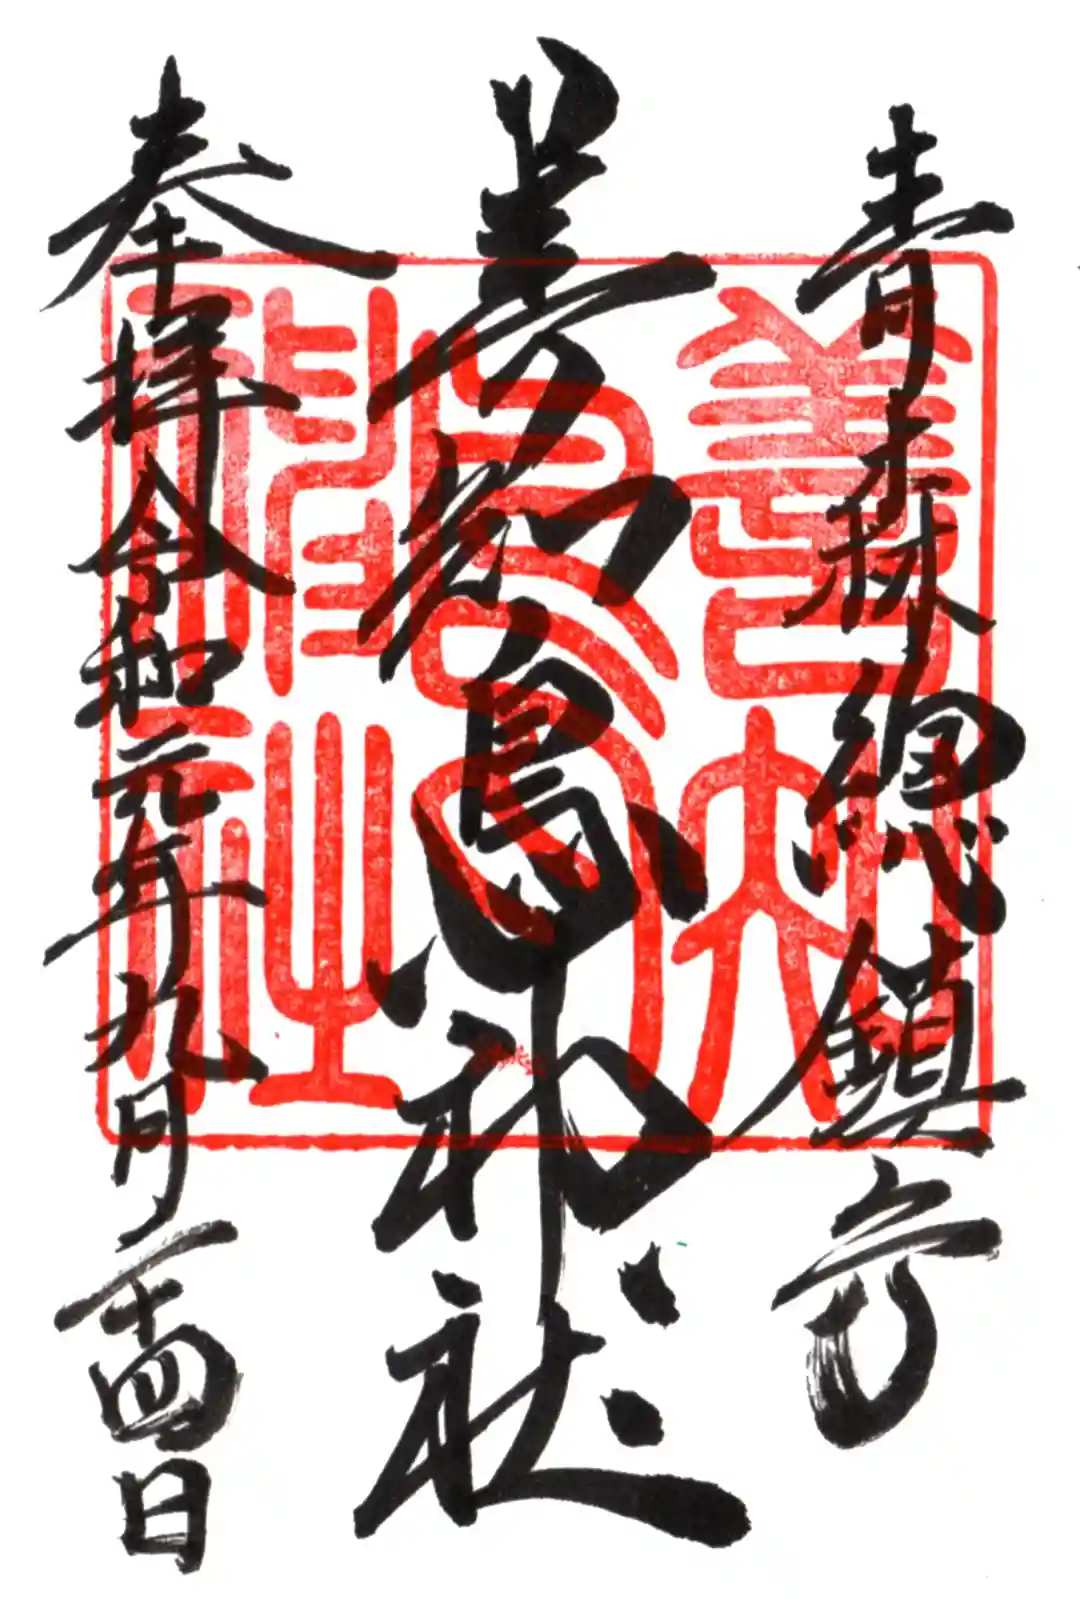 青森総鎮守
善知鳥神社
奉拝令和元年九月二十四日
善知鳥神社